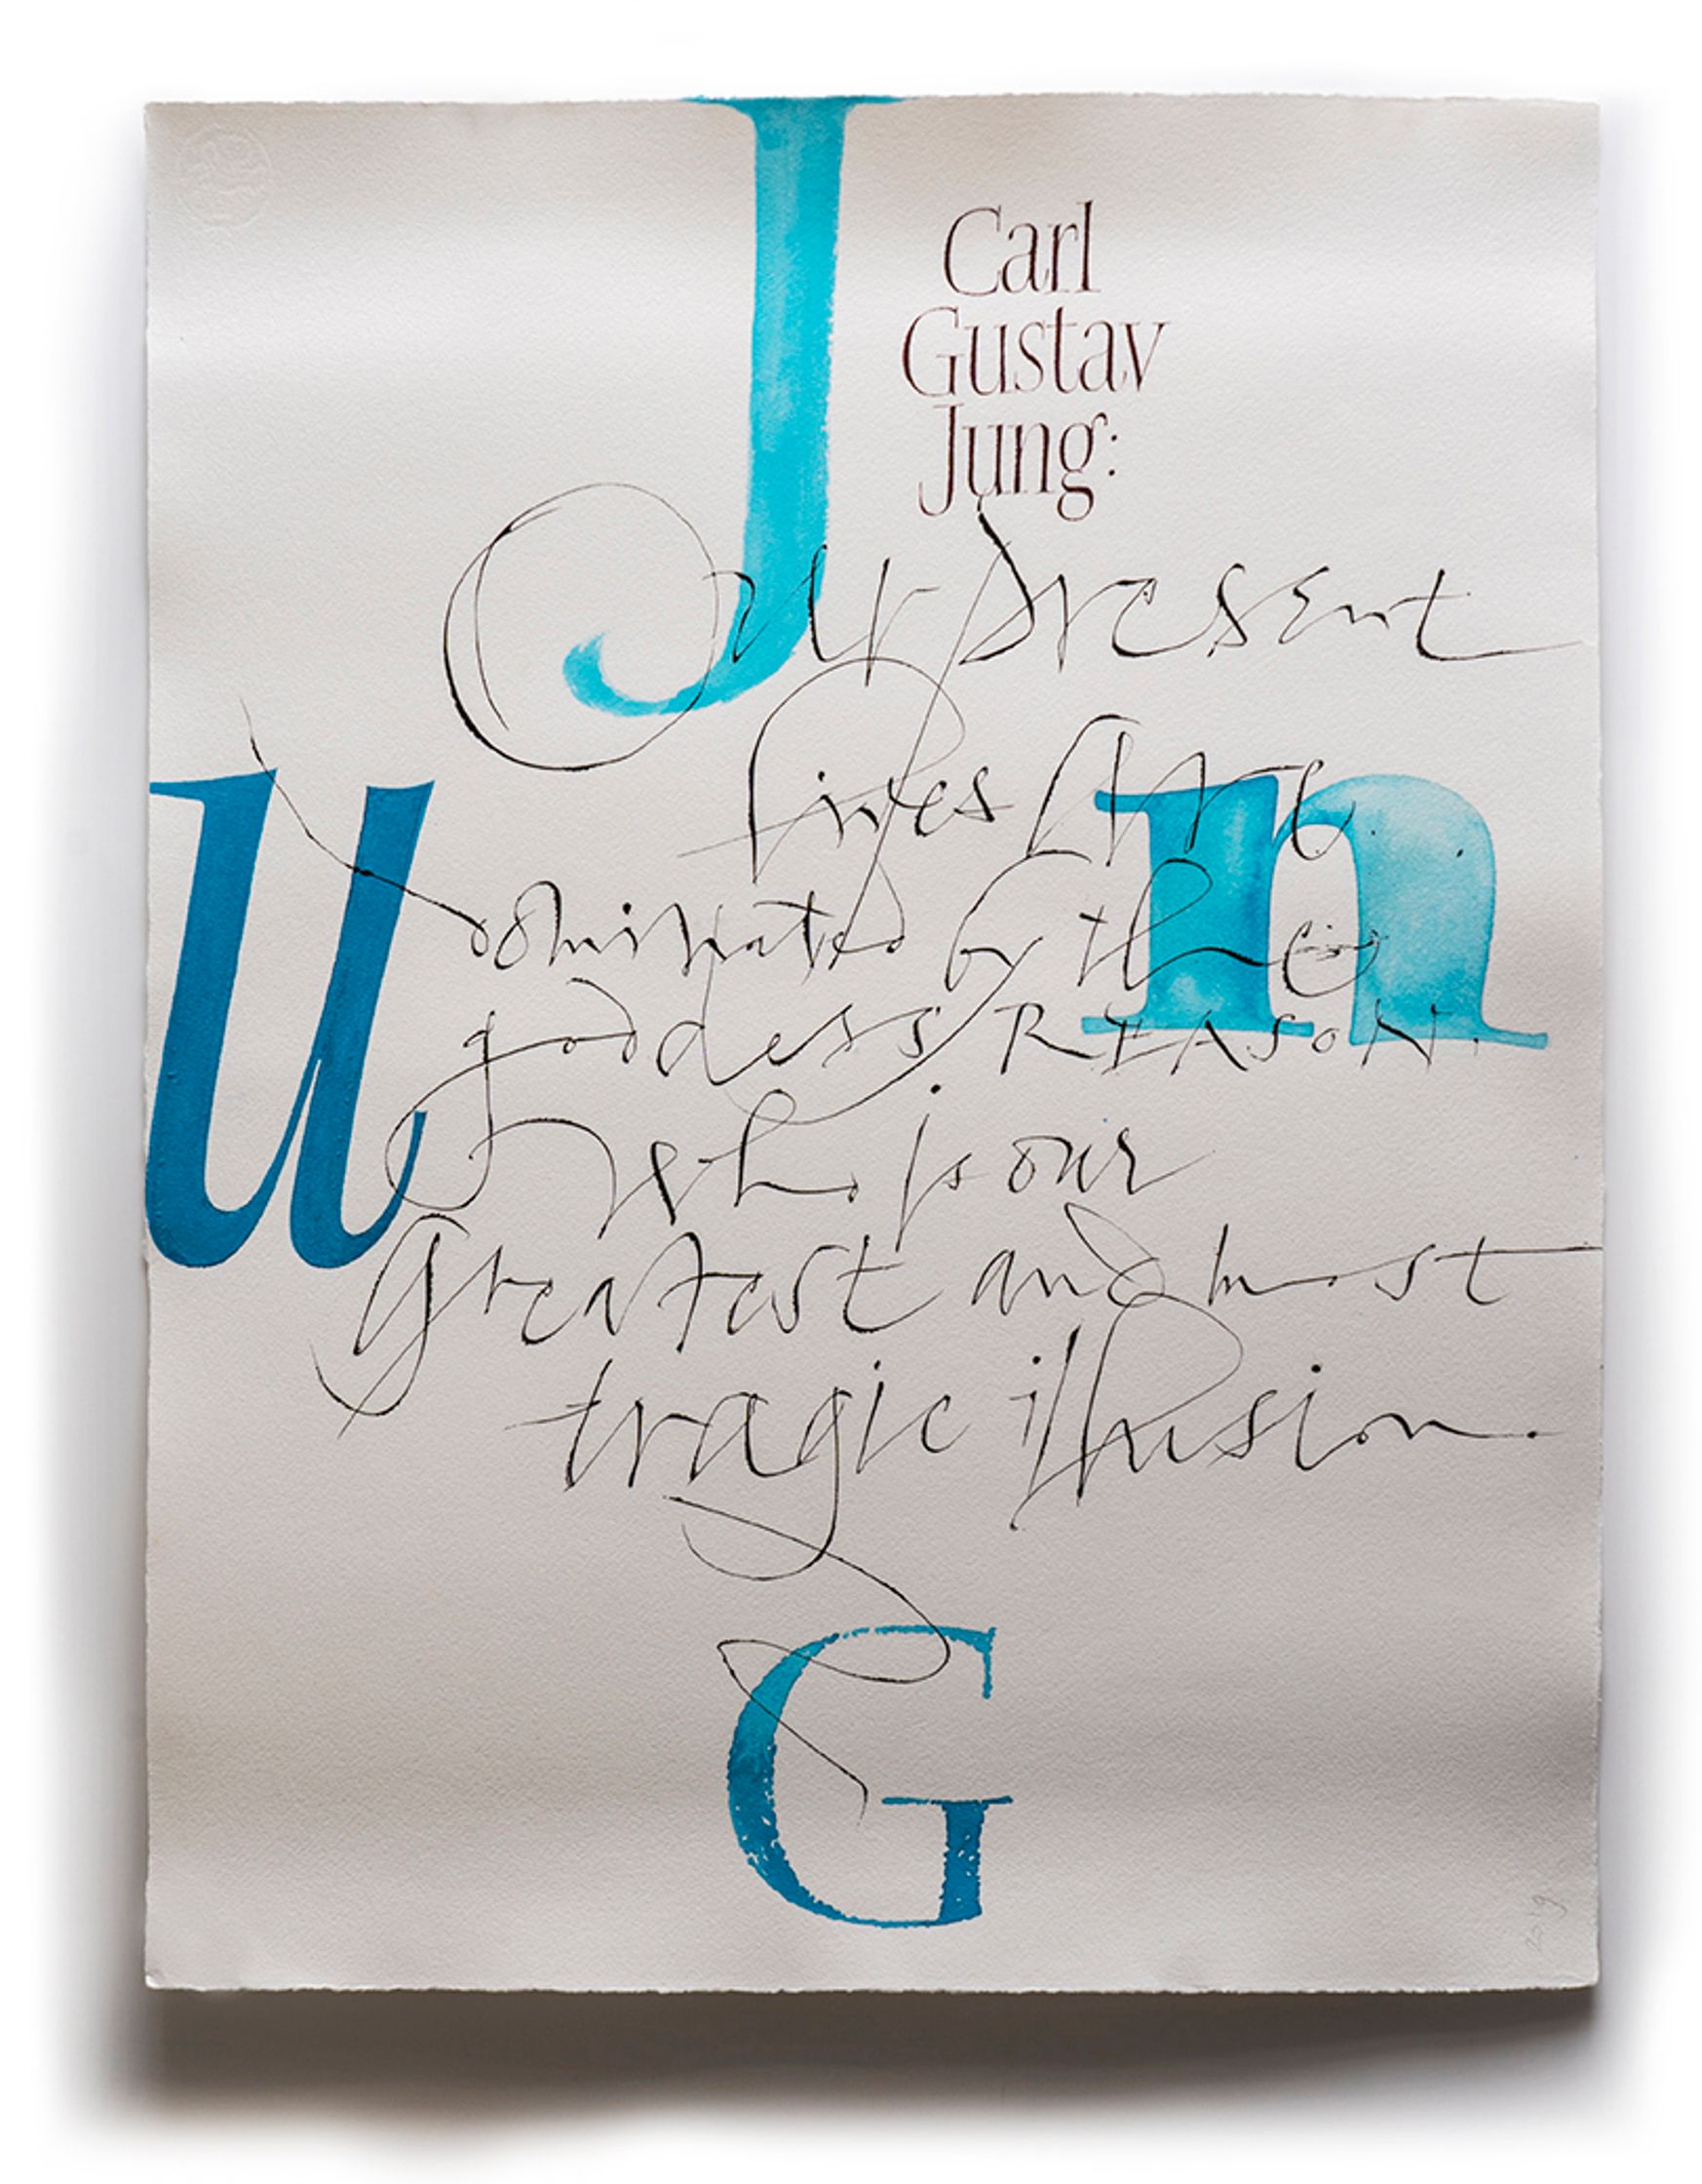 J
Carl
Gustav
Jung:
Our present
lives are
dominated by the
goddess REASON.
who is our
greatest and most
tragic illusion.
u
n
G
2019